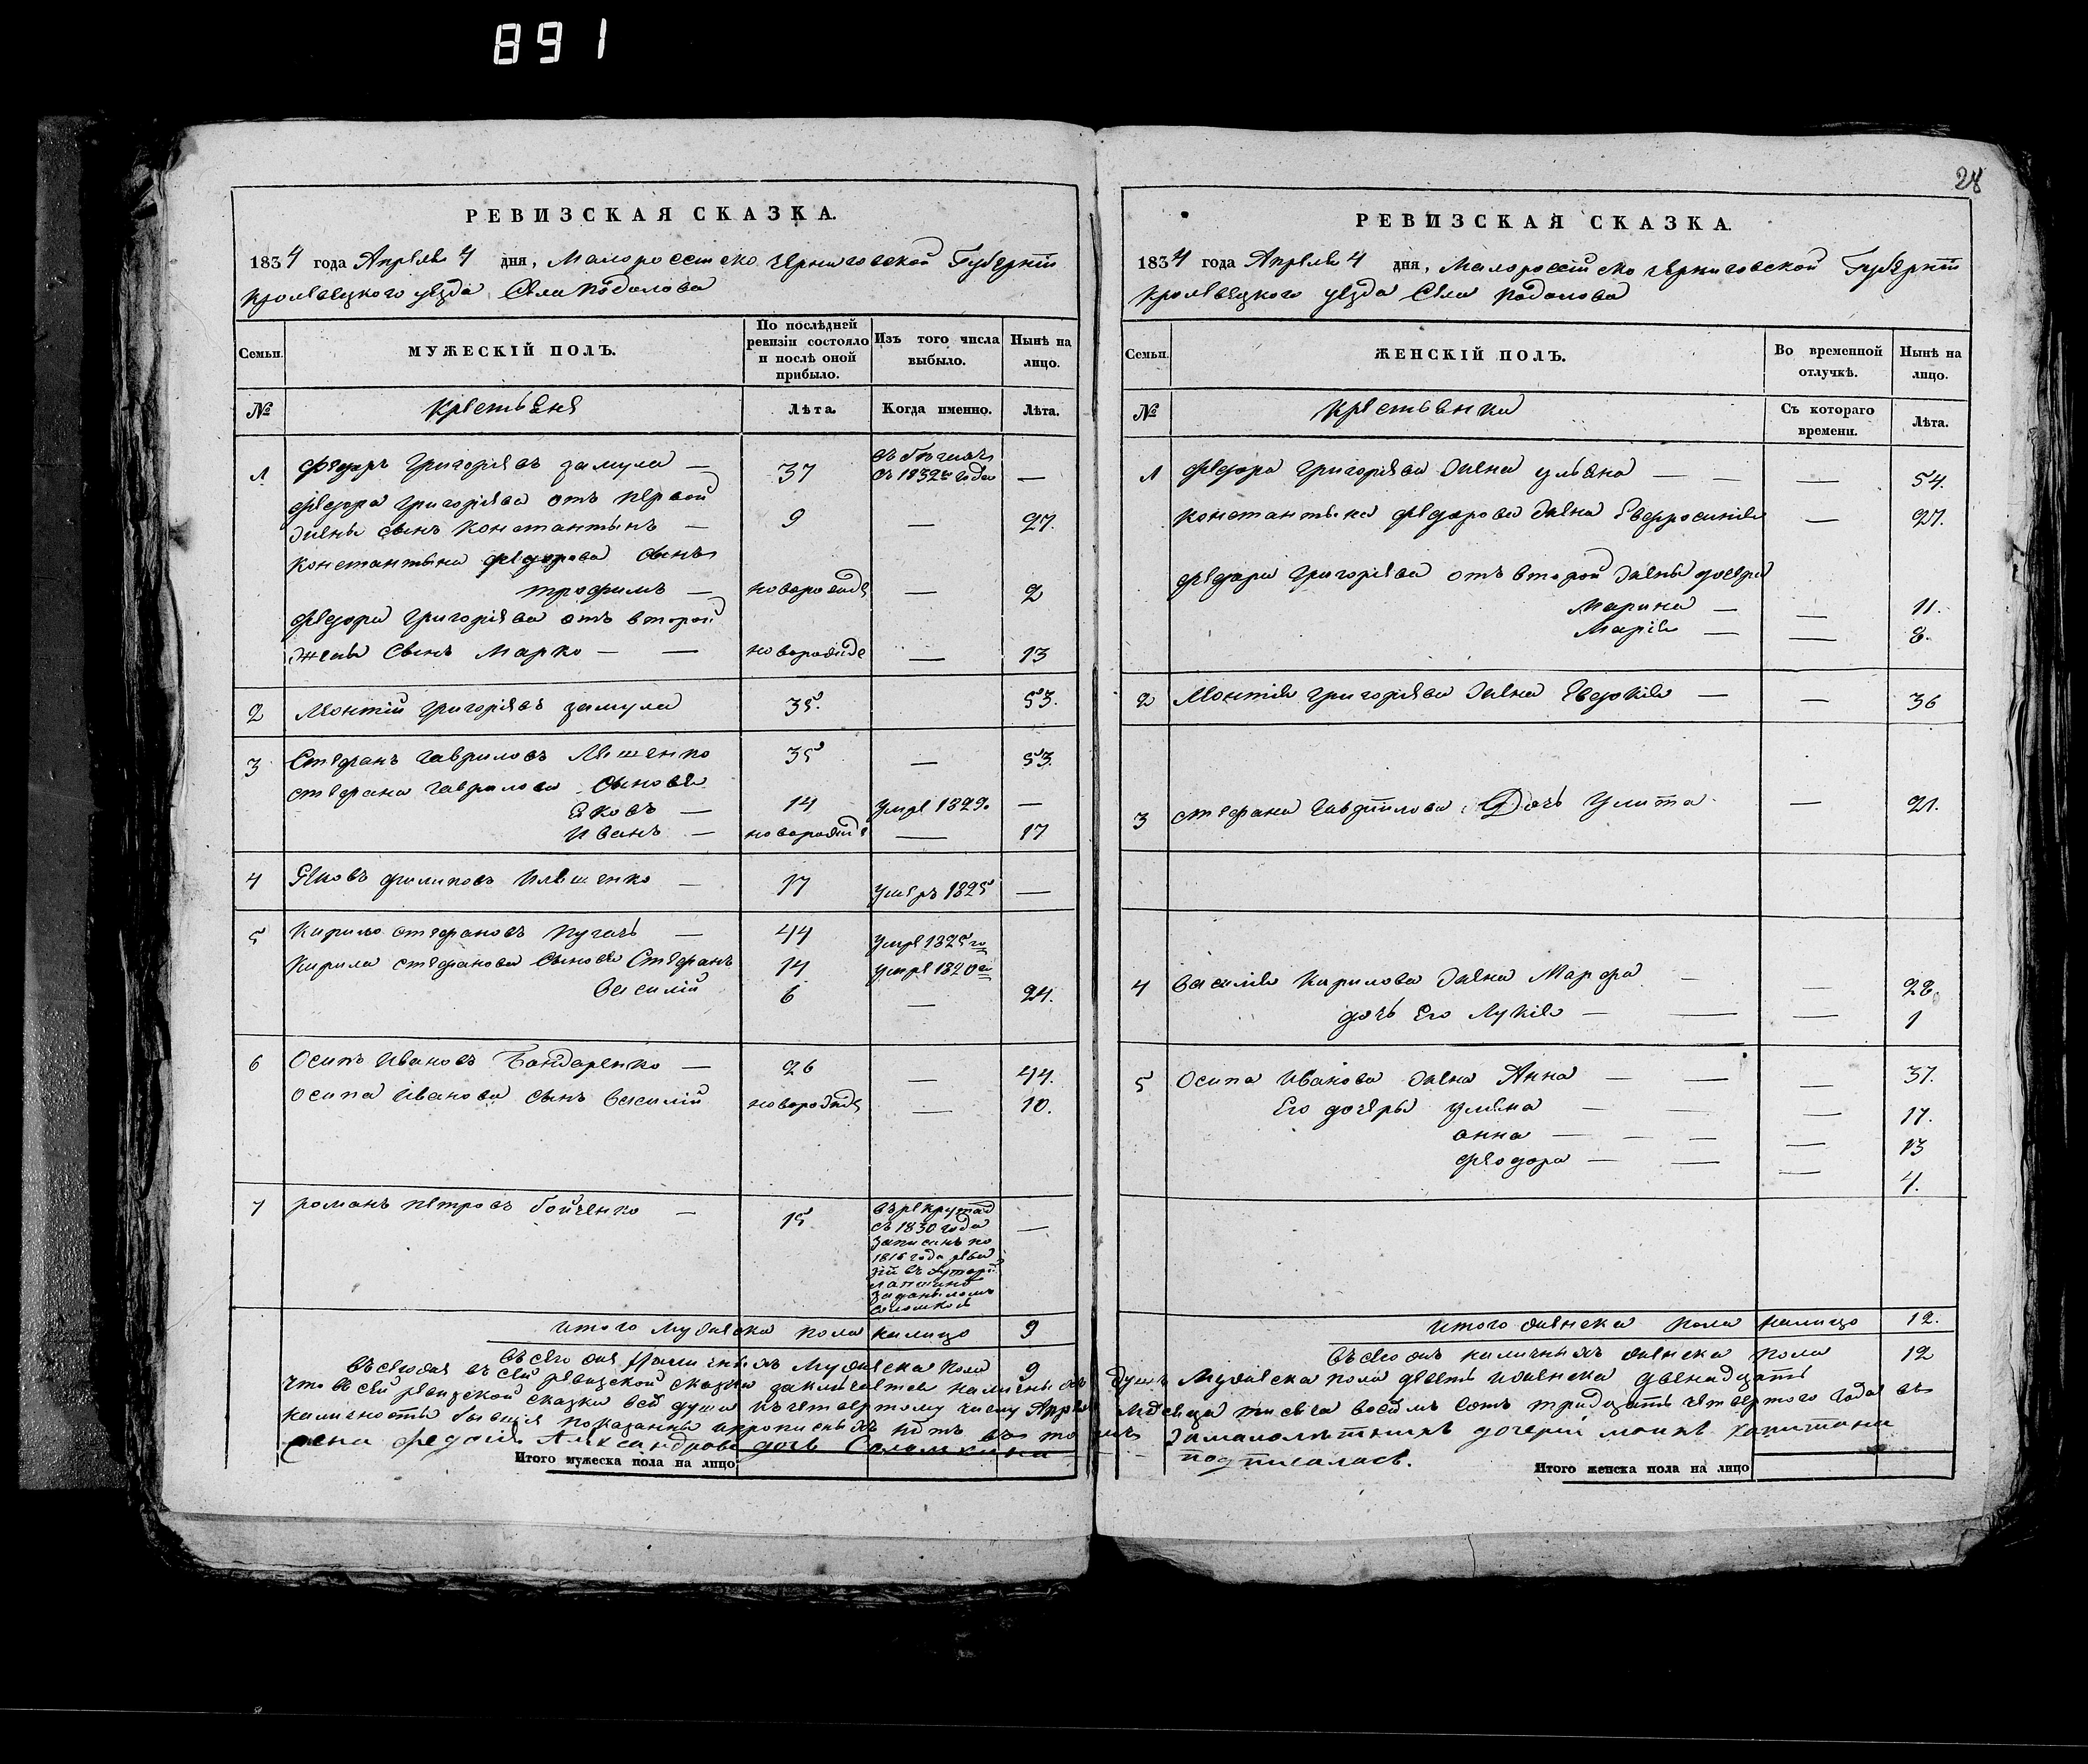 891
28
РЕВИЗСКАЯ СКАЗКА.
1834 года Апреля 4 дня, Малороссийско черниговской Губерніи
кролевецкого уезда Села Подолова
Семьи. МУЖЕСКІЙ ПОЛЪ. По послѣдней ревизіи состояло и послѣ оной прибыло. Изъ того числа выбыло. Нынѣ на лицо.
№ крестьяне Лѣта. Когда именно. Лѣта.
1 Федоръ Григориевъ замула — 37 въ бегахъ съ 1832го года —
Федора Григориева отъ первой
жены сынъ Константынъ — 9 — 27.
Константына федорова сынъ
трофимъ — новорожде — 2
Федора Григориева отъ второй
жены сынъ Марко — — новорожде — 13
2 Леонтий Григориевъ замула 35. 53.
3 Стефанъ Гавриловъ Ляшенко 35 — 53.
стефана Гаврилова сыновя
Яковъ — 14 Умре 1829. —
Иванъ — новорожде — 17
4 Яковъ филиповъ Иляшенко — 17 Умеръ 1825 —
5 Кирило стефановъ Пугачъ — 44 Умре 1825го
Кирила стефанова сыновя Стефанъ 14 умре 1820го
Василій 6 — 24.
6 Осипъ Ивановъ Бондаренко — 26 — 44.
Осипа Иванова сынъ Василій новорожде — 10.
7 романъ петровъ бойченко — 15 въ рекрутад —
съ 1830 года
записанъ по
1816 года реви
зіи въ хуторе
итого мужеска пола налицо 9
Всего же наличныхъ мужеска пола 9
Итого мужеска пола на лицо
РЕВИЗСКАЯ СКАЗКА.
1834 года Апреля 4 дня, Малороссійско черниговской Губерніи
кролевецкого уезда Села Подолова
Семьи. ЖЕНСКІЙ ПОЛЪ. Во временной отлучкѣ. Нынѣ на лицо.
№ крестьянки Съ котораго времени. Лѣта.
1 Федора Григориева жена ульяна — — — 54.
Константына федорова жена Евфросиния — 27.
Федора Григориева отъ второй жены дочери
Марина — — 11.
Мария — — 8.
2 Леонтия Григориева жена Евдокия — — 36
3 стефана Гаврилова Дочъ Улита — 21.
4 Василия Кирилова жена Марфа — — 28.
дочъ Его Лукия — — — 1
5 Осипа Иванова жена Анна — — — 37.
Его дочеры улияна — — — 17.
анна — — — — 13
феодора — — — 4.
итого женска пола налицо 12.
Всего же наличныхъ женска пола 12
что в сей ревизской сказки
душъ Мужеска пола девять и женска двенадцать
месяца тисяча восемъ сотъ тридцать четвертого года въ
за малолетныхъ дочерей моихъ капитана
подписалась.
Итого женска пола на лицо